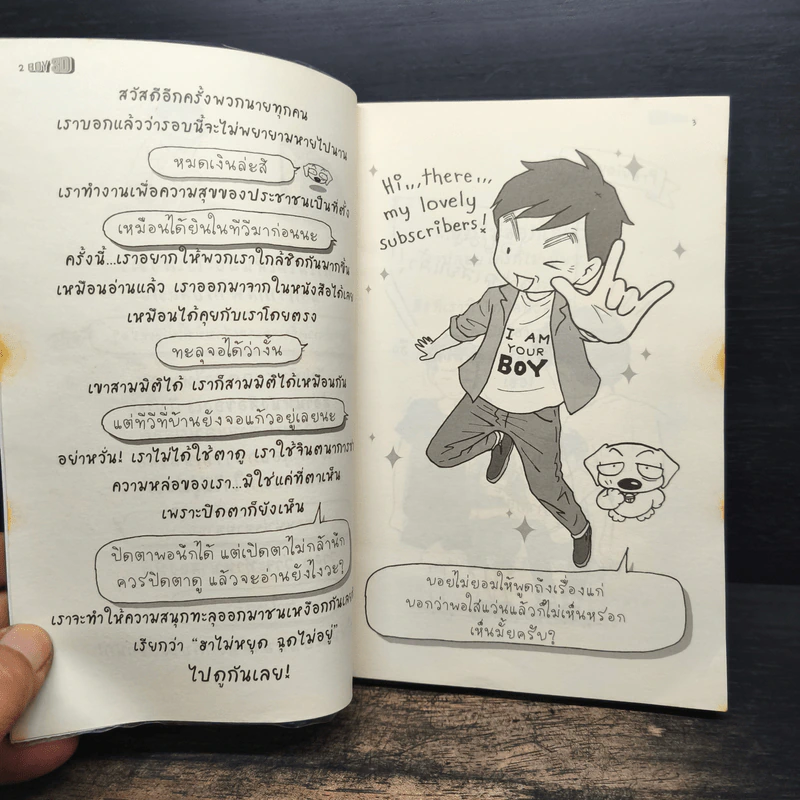 2 BOY 3D
สวัสดีอีกครั้งพวกนายทุกคน
เราบอกแล้วว่ารอบนี้จะไม่พยายามหายไปนาน
หมดเงินล่ะสิ
เราทำงานเพื่อความสุขของประชาชนเป็นที่ตั้ง
เหมือนได้ยินในทีวีมาก่อนนะ
ครั้งนี้...เราอยากให้พวกเราใกล้ชิดกันมากขึ้น
เหมือนอ่านแล้ว เราออกมาจากในหนังสือได้เลย
เหมือนได้คุยกับเราโดยตรง
ทะลุจอได้ว่างั้น
เขาสามมิติได้ เราก็สามมิติได้เหมือนกัน
แต่ทีวีที่บ้านยังจอแก้วอยู่เลยนะ
อย่าหวั่น! เราไม่ได้ใช้ตาดู เราใช้จินตนาการ
ความหล่อของเรา...มิใช่แค่ที่ตาเห็น
เพราะปิดตาก็ยังเห็น
ปิดตาพอนึกได้ แต่เปิดตาไม่กล้านึก
ควรปิดตาดู แล้วจะอ่านยังไงวะ?
เราจะทำให้ความสนุกทะลุออกมาชนเหงือกกันเลย
เรียกว่า "ฮาไม่หยุด ฉุดไม่อยู่"
ไปดูกันเลย!
3
Hi,,,there,,,
my lovely
subscribers!
I AM
YOUR
BOY
บอยไม่ยอมให้พูดถึงเรื่องแก่
บอกว่าพอใส่แว่นแล้วก็ไม่เห็นหรอก
เห็นมั้ยครับ?